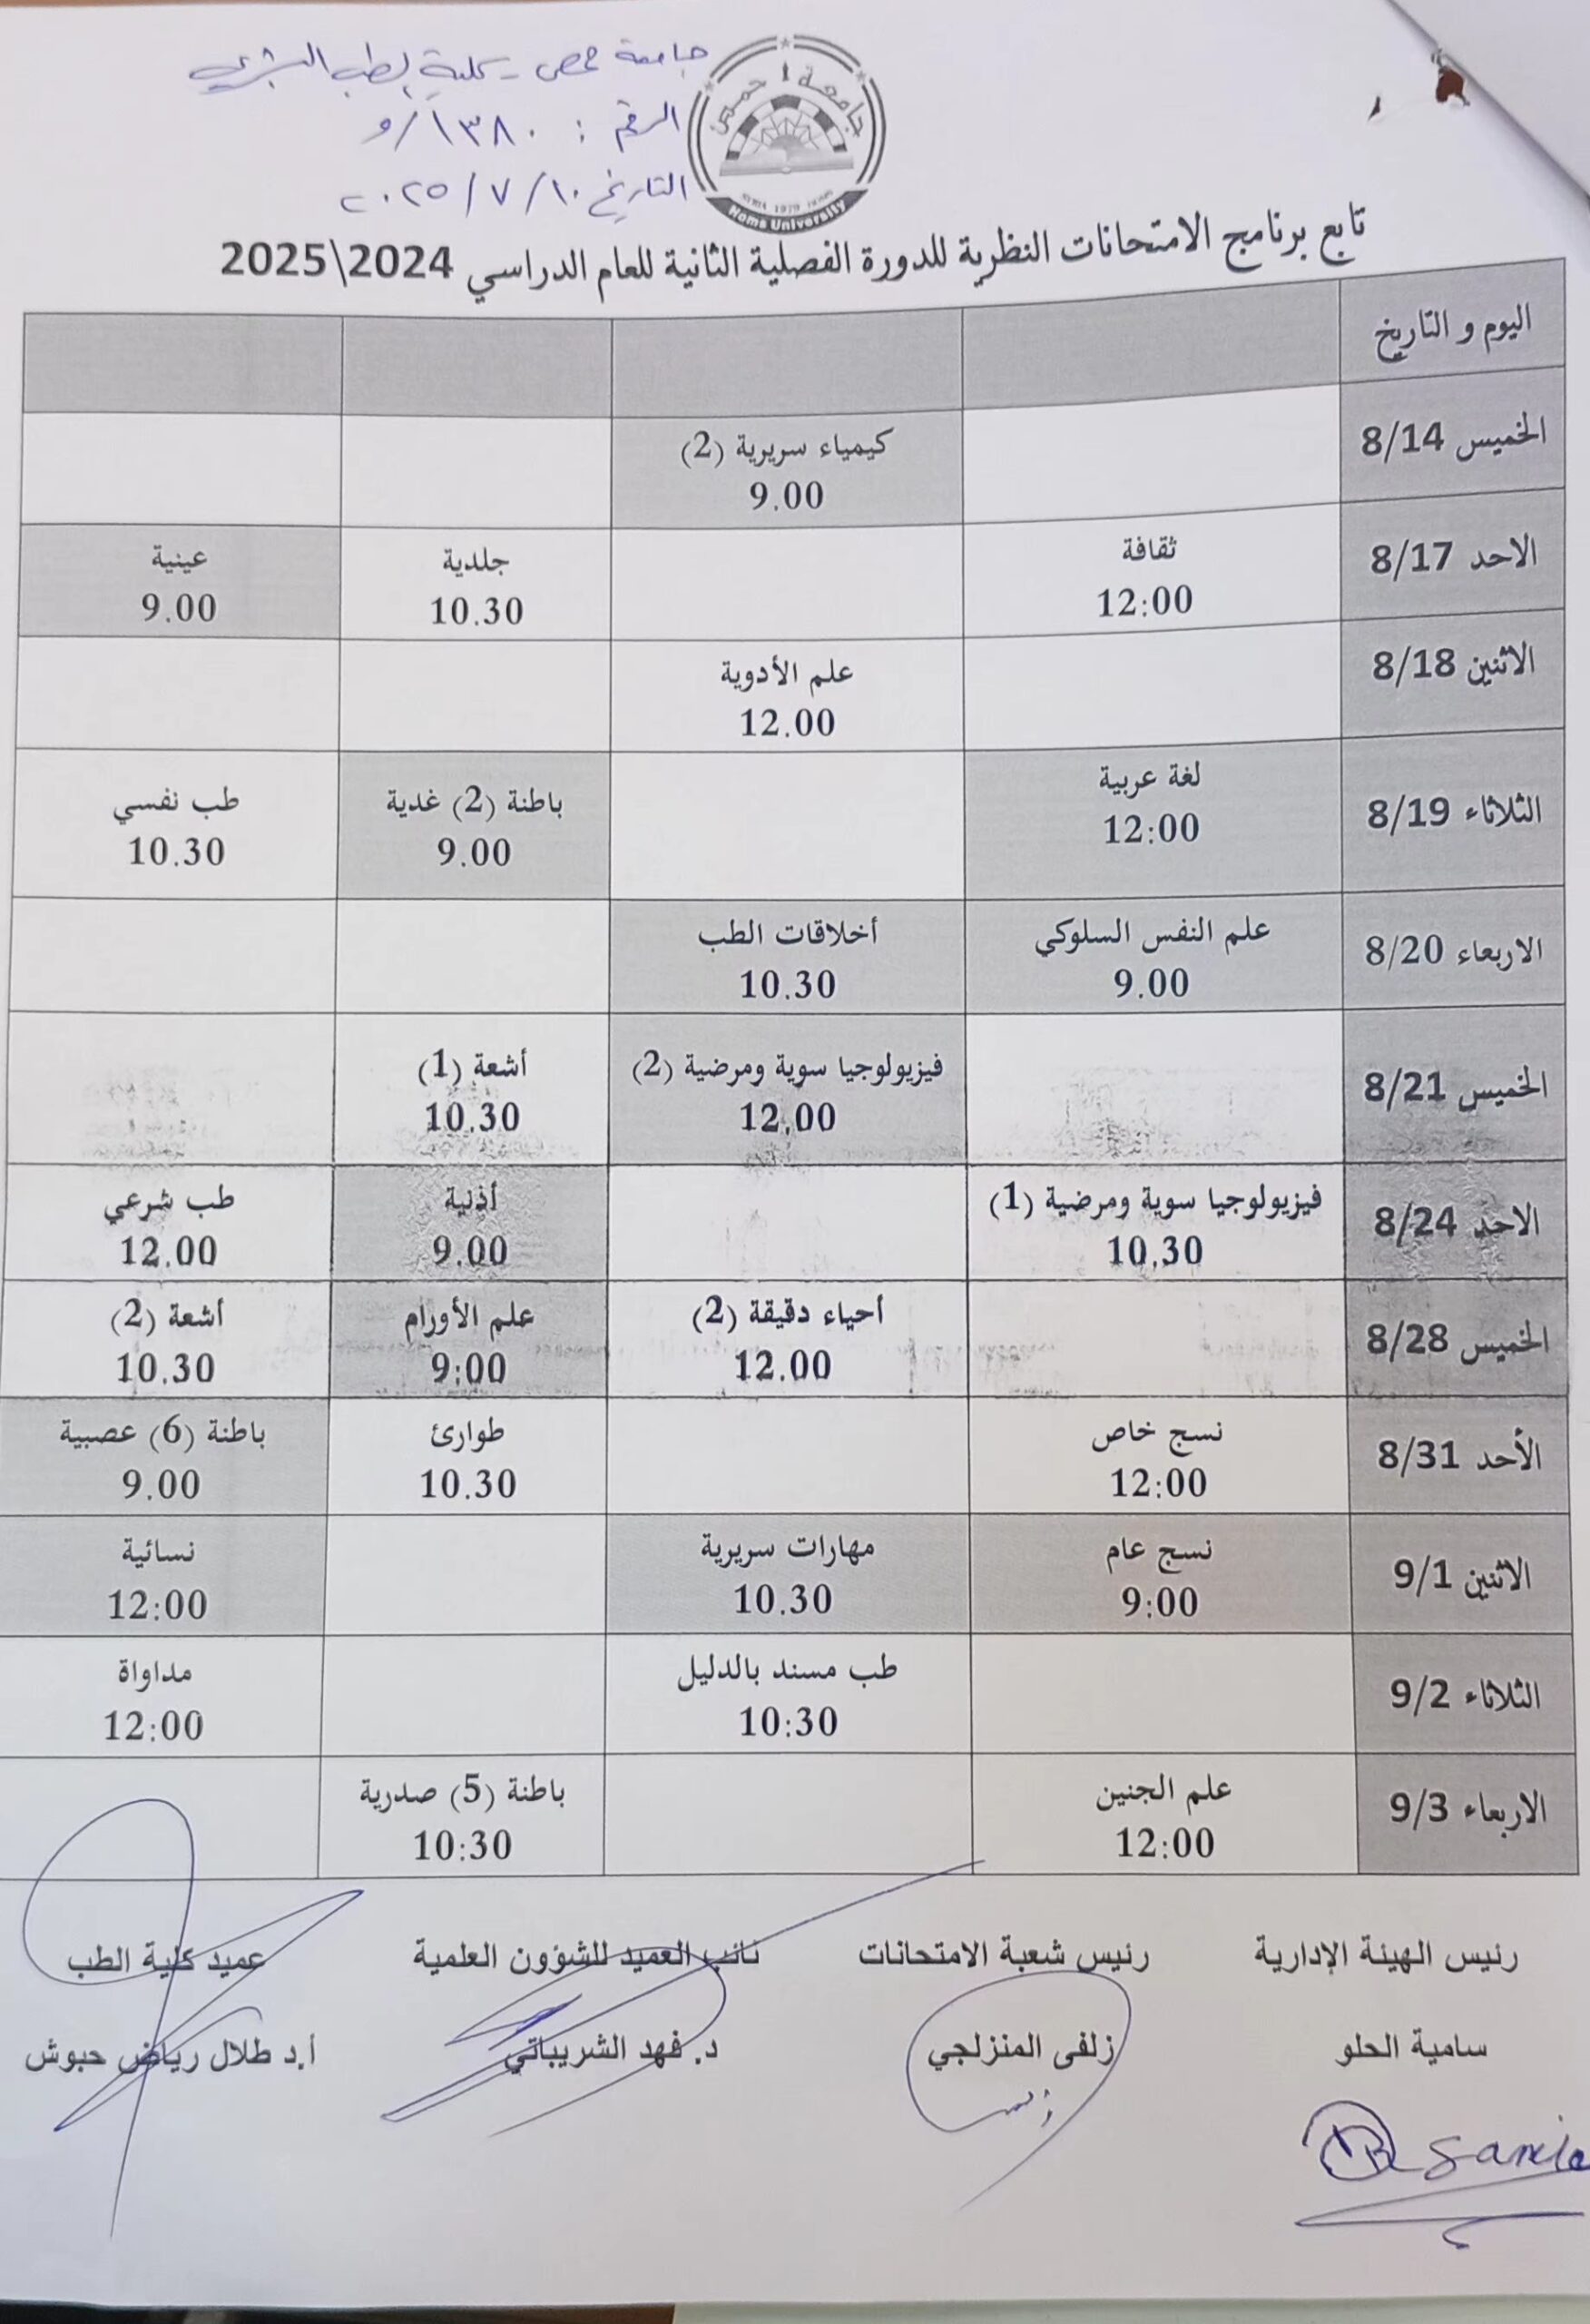 جامعة حمص - كلية الطب البشري
الرقم : ١٣٨٠/و
التاريخ ١٠/٧/٢٠٢٥
جامعة حمص
SYRIA 1979 HOMS
Homs University
تابع برنامج الامتحانات النظرية للدورة الفصلية الثانية للعام الدراسي 2024\2025
اليوم و التاريخ
الخميس 8/14
كيمياء سريرية (2)
9.00
الاحد 8/17
ثقافة
12:00
جلدية
10.30
عينية
9.00
الاثنين 8/18
علم الأدوية
12.00
الثلاثاء 8/19
لغة عربية
12:00
باطنة (2) غدية
9.00
طب نفسي
10.30
الاربعاء 8/20
علم النفس السلوكي
9.00
أخلاقات الطب
10.30
الخميس 8/21
فيزيولوجيا سوية ومرضية (2)
12.00
أشعة (1)
10.30
الاحد 8/24
فيزيولوجيا سوية ومرضية (1)
10.30
أذنية
9.00
طب شرعي
12.00
الخميس 8/28
أحياء دقيقة (2)
12.00
علم الأورام
9:00
أشعة (2)
10.30
الأحد 8/31
نسج خاص
12:00
طوارئ
10.30
باطنة (6) عصبية
9.00
الاثنين 9/1
نسج عام
9:00
مهارات سريرية
10.30
نسائية
12:00
الثلاثاء 9/2
طب مسند بالدليل
10:30
مداواة
12:00
الاربعاء 9/3
علم الجنين
12:00
باطنة (5) صدرية
10:30
رئيس الهيئة الإدارية
سامية الحلو
رئيس شعبة الامتحانات
زلفى المنزلجي
نائب العميد للشؤون العلمية
د. فهد الشريباتي
عميد كلية الطب
أ.د طلال رياض حبوش